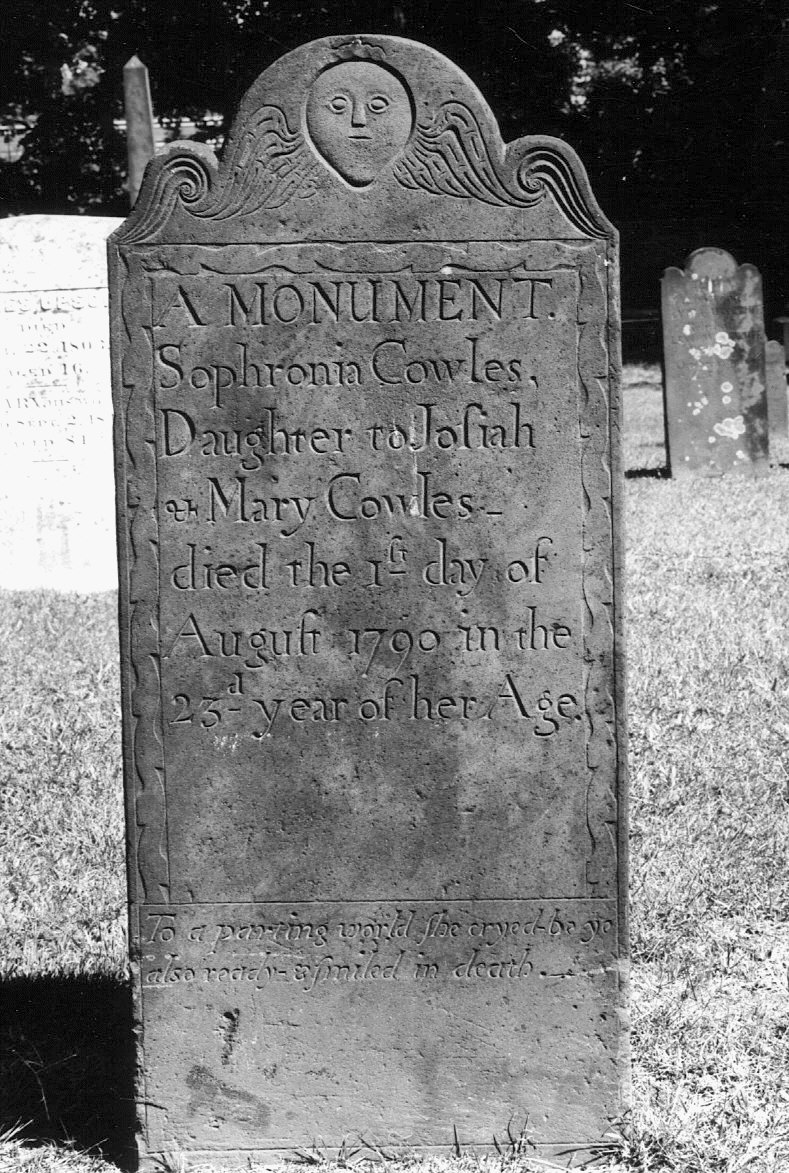 A MONUMENT.
Sophronia Cowles,
Daughter to Joſiah
& Mary Cowles -
died the 1ſt day of
Auguſt 1790 in the
23d year of her Age.
To a parting world ſhe cryed-be ye
alſo ready-&ſmiled in death.
DIED